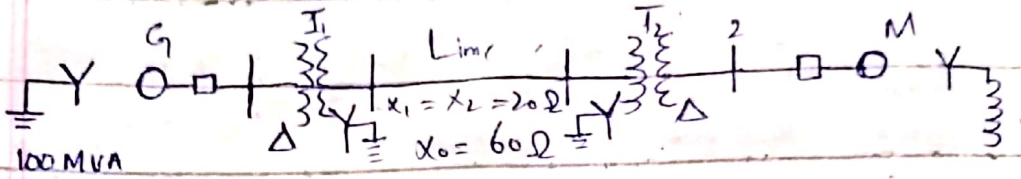 G T₁ Line T₂ 2 M
Y Y
x₁ = x₂ = 20Ω
Δ Y Y Δ
x₀ = 60Ω
100 MVA